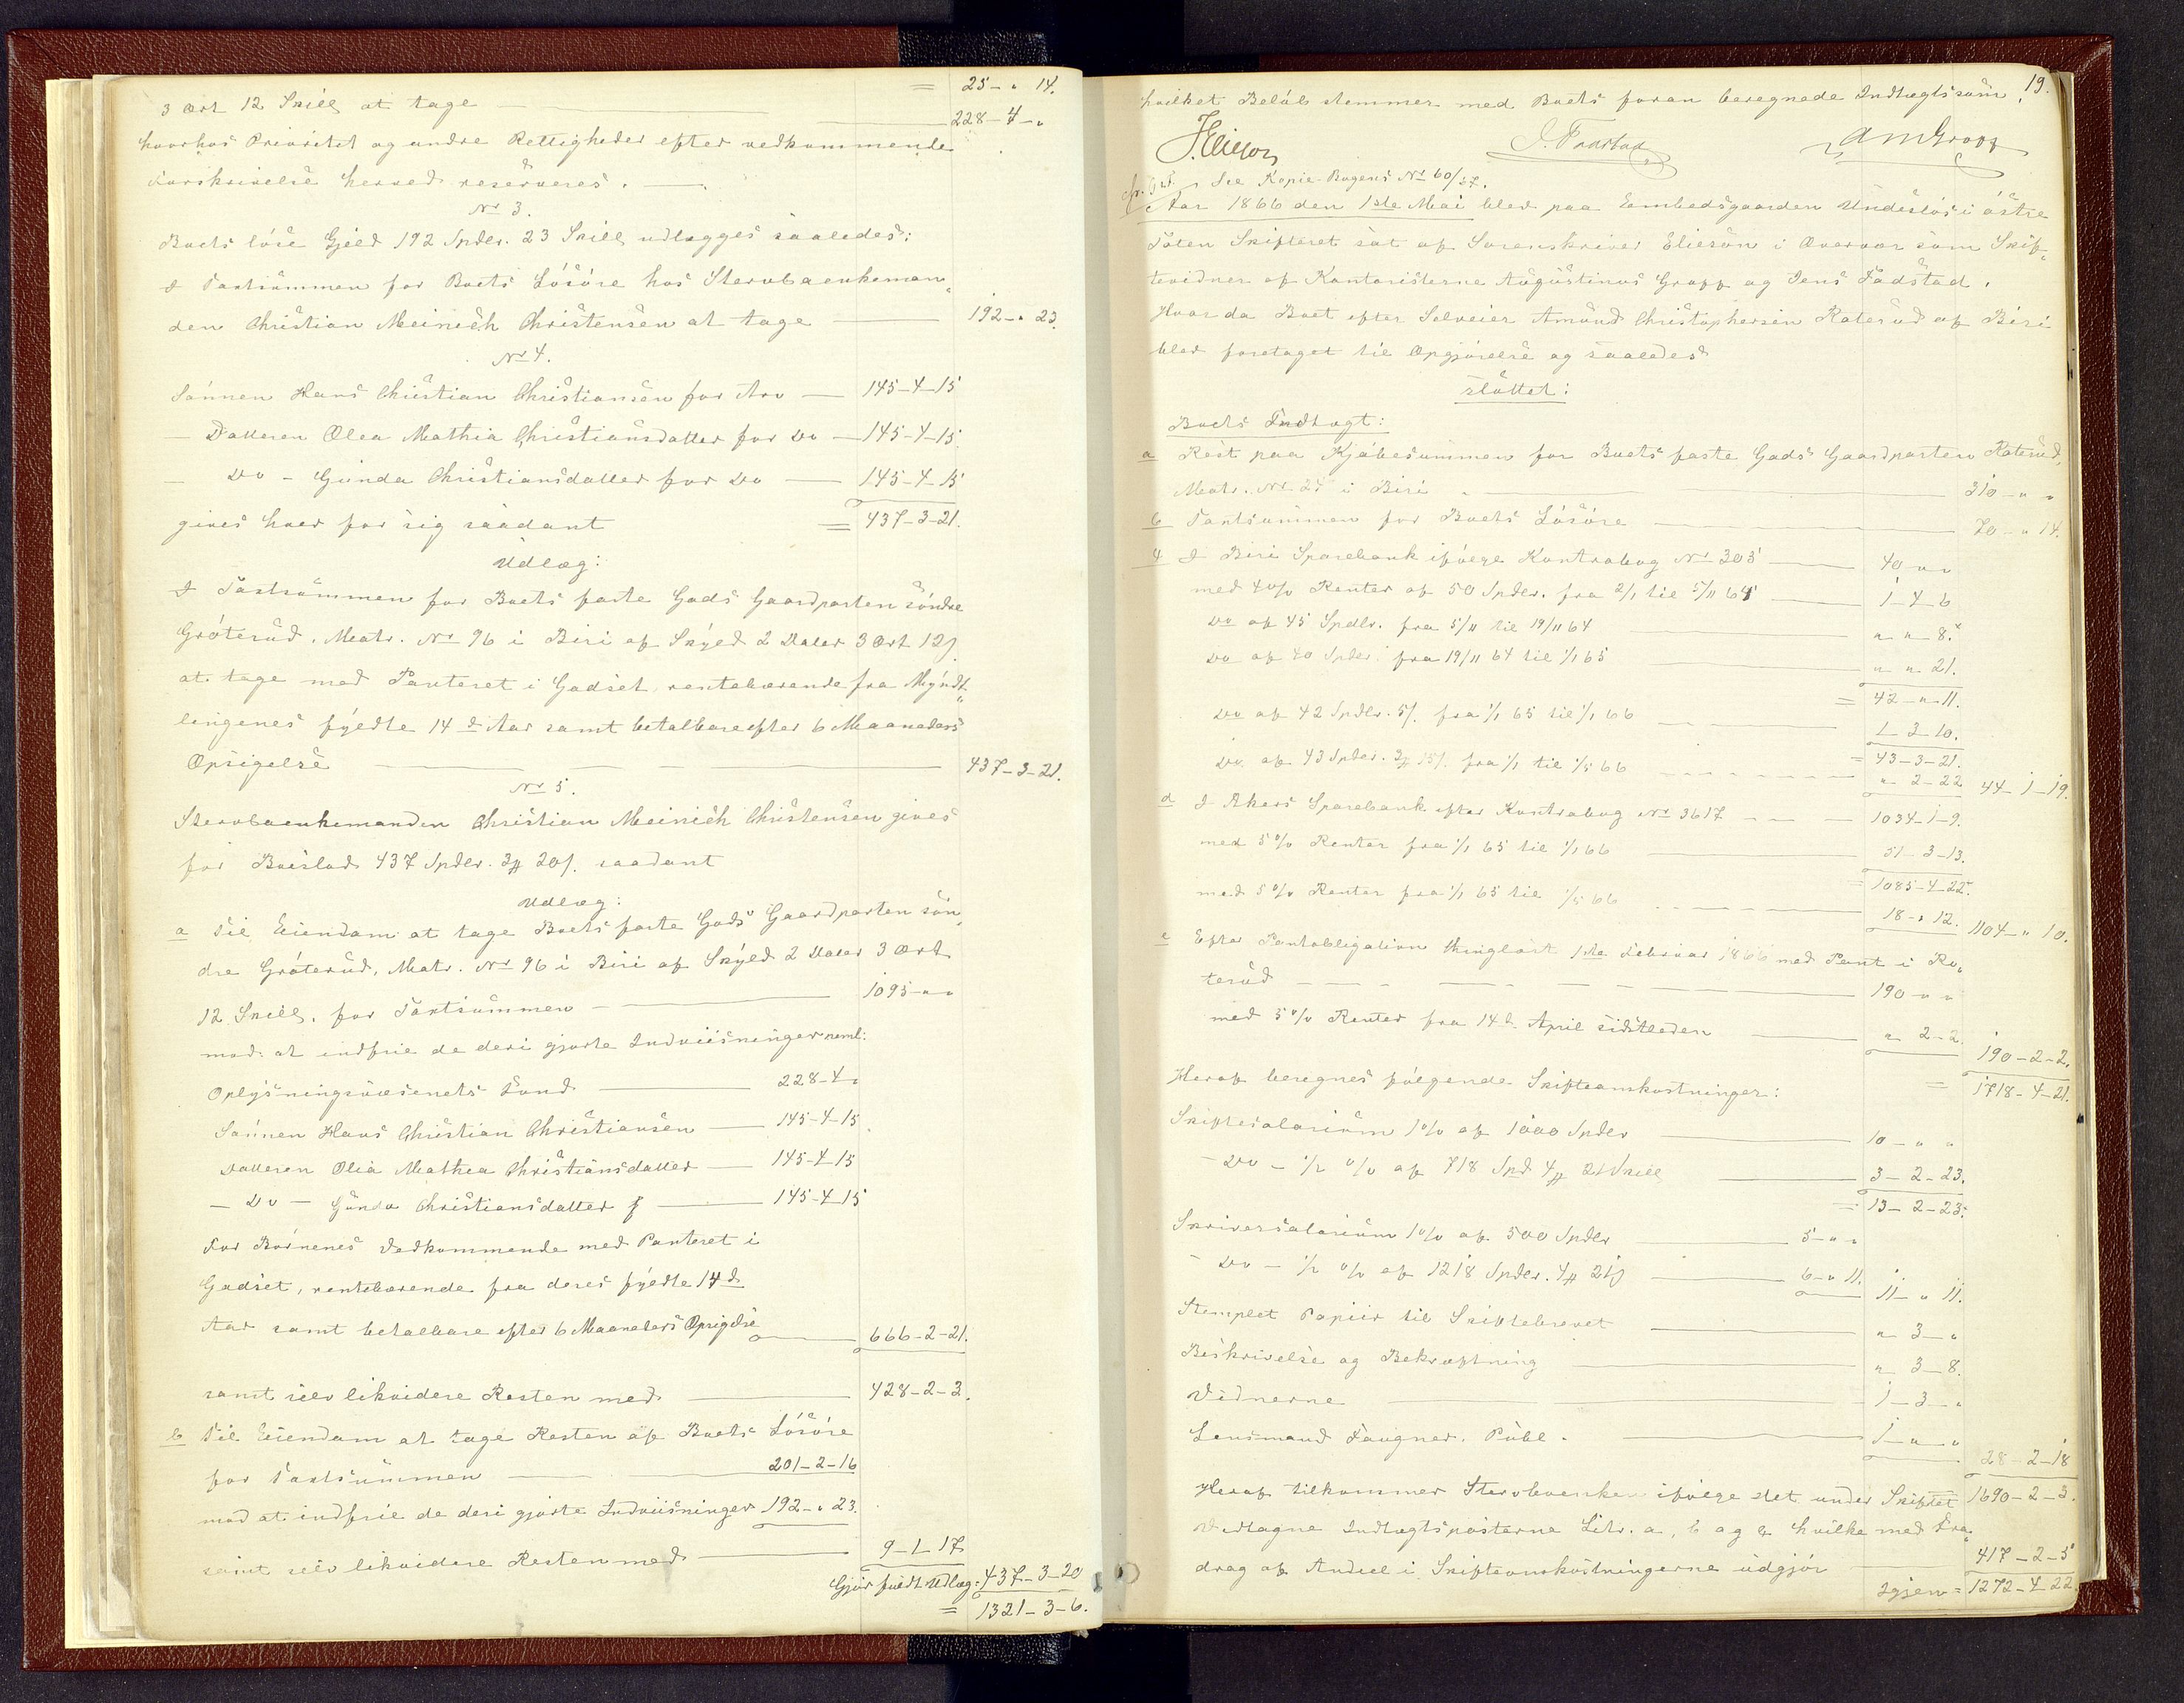 = 25 - „ 14.
3 Ort 12 Skill at tage 228 - 4 - „
hvorhos Prioritet og andre Rettigheder efter vedkommende
Forskrivelse herved reserveres.
No 3.
Boets löse Gjeld 192 Spdlr. 23 Skill udlægges saaledes:
I Taxtsummen for Boets Lösöre hos Stervboenkeman„
den Christian Meinich Christensen at tage 192 - „ 23.
No 4.
Sönnen Hans Christian Christiansen for Arv 145 - 4 - 15
— Datteren Olea Mathia Christiansdatter for Do 145 - 4 - 15.
— Do - Gunda Christiansdatter for Do 145 - 4 - 15
gives hver for sig saadant = 437 - 3 - 21.
Udlæg:
I Taxtsummen for Boets faste Gods Gaardparten söndre
Gröterud, Matr. No 96 i Biri af Skyld 2 Daler 3 Ort 12 ſ
at tage med Panteret i Godset, rentebærende fra Mynd„
lingenes fyldte 14 d Aar samt betalbare efter 6 Maaneders
Opsigelse 437 - 3 - 21.
No 5.
Stervboenkemanden Christian Meinich Christensen gives
for Boeslod 437 Spdlr. 3 # 20 ſ. saadant
Udlæg:
a Til Eiendom at tage Boets faste Gods Gaardparten sön„
dre Gröterud, Matr. No 96 i Biri af Skyld 2 Daler 3 Ort
12 Skill. for Taxtsummen 1095 „ „
mod at indfrie de deri gjorte Indviisninger neml:
Oplysningsvæsenets Fond 228 - 4 „
Sönnen Hans Christian Christiansen 145 - 4 - 15.
Datteren Olia Mathea Christiansdatter 145 - 4 - 15
— Do — Gunda Christiansdatter 145 - 4 - 15
For Börnenes Vedkommende med Panteret i
Godset, rentebærende fra deres fyldte 14 d
Aar samt betalbare efter 6 Maaneders Opsigelse 666 - 2 - 21.
samt selv likvidere Resten med 428 - 2 - 3.
b Til Eiendom at tage Resten af Boets Lösöre
for Taxtsummen 201 - 2 - 16
mod at indfrie de deri gjorte Indviisninger 192 - „ 23.
samt selv likvidere Resten med 9 - 1 - 17
Gjör fuldt Udlæg: 437 - 3 - 20
= 1321 - 3 - 6.
19.
hvilket Belöb stemmer med Boets foran beregnede Indtægtssum.
JElieson J. Faastad AMGropp
See Kopie-Bogens No 60/67.
Aar 1866 den 1ste Mai blev paa Embedsgaarden Undeslös i östre
Toten Skifteret sat af Sorenskriver Elieson i Overvær som Skif„
tevidner af Kontoristerne Augustinus Gropp og Jens Fadstad.
Hvor da Boet efter Selveier Amund Christophersen Roterud af Biri
blev foretaget til Opgjörelse og saaledes
sluttet:
Boets Indtægt:
a Rest paa Kjöbesummen for Boets faste Gods Gaardparten Roterud,
Matr. No 27 i Biri 310 - „ „
b Taxtsummen for Boets Lösöre 70 - „ 14.
I Biri Sparebank ifölge Kontrabog No 303 40 „ „
med 4 0/0 Renter af 50 Spdlr. fra 2/1 til 5/11 64 1 - 4 - 6
Do af 45 Spdlr. fra 5/11 til 19/11 64 „ „ 8.
Do af 40 Spdlr. fra 19/11 64 til 1/1 65 „ „ 21.
= 42 - „ 11.
Do af 42 Spdlr. 5/. fra 1/1 65 til 1/1 66 1 - 3 - 10.
= 43 - 3 - 21.
Do af 43 Spdlr. 3 # 15 ſ. fra 1/1 til 1/5 66 „ 2 - 22 44 - 1 - 19.
d I Akers Sparebank efter Kontrabog No 3617 1034 - 1 - 9.
med 5 0/0 Renter fra 1/1 65 til 1/1 66 51 - 3 - 13.
= 1085 - 4 - 22.
med 5 0/0 Renter fra 1/1 65 til 1/5 66 18 - „ 12. 1104 - „ 10.
e Efter Pantobligation thinglæst 1ste Februar 1866 med Pant i Ro„
terud 190 „ „
med 5 0/0 Renter fra 14 d. April sidstleden „ 2 - 2. 190 - 2 - 2.
Heraf beregnes fölgende Skifteomkostninger: = 1718 - 4 - 21.
Skiftesalarium 1 0/0 af 1000 Spdlr 10 - „ „
— Do — 1/2 0/0 af 718 Spd 4 # 21 Skill 3 - 2 - 23.
= 13 - 2 - 23.
Skriversalarium 1 0/0 af 500 Spdlr 5 - „ „
— Do — 1/2 0/0 af 1218 Spdlr. 4 # 21 ſ 6 - „ 11. 11 - „ 11.
Stemplet Papiir til Skiftebrevet „ 3 - „
Beskrivelse og Bekræftning „ 3 - 8.
Vidnerne 1 - 3 - „
Lensmand Faugner. Publ. 1 - „ - „ 28 - 2 - 18
Heraf tilkommer Stervboenken ifölge det under Skiftet 1690 - 2 - 3.
Vedtagne Indtægtsposterne Litr. a, b og hvilke med Fra„
drag af Andeel i Skifteomkostningerne udgjör 417 - 2 - 5
Igjen = 1272 - 4 - 22.